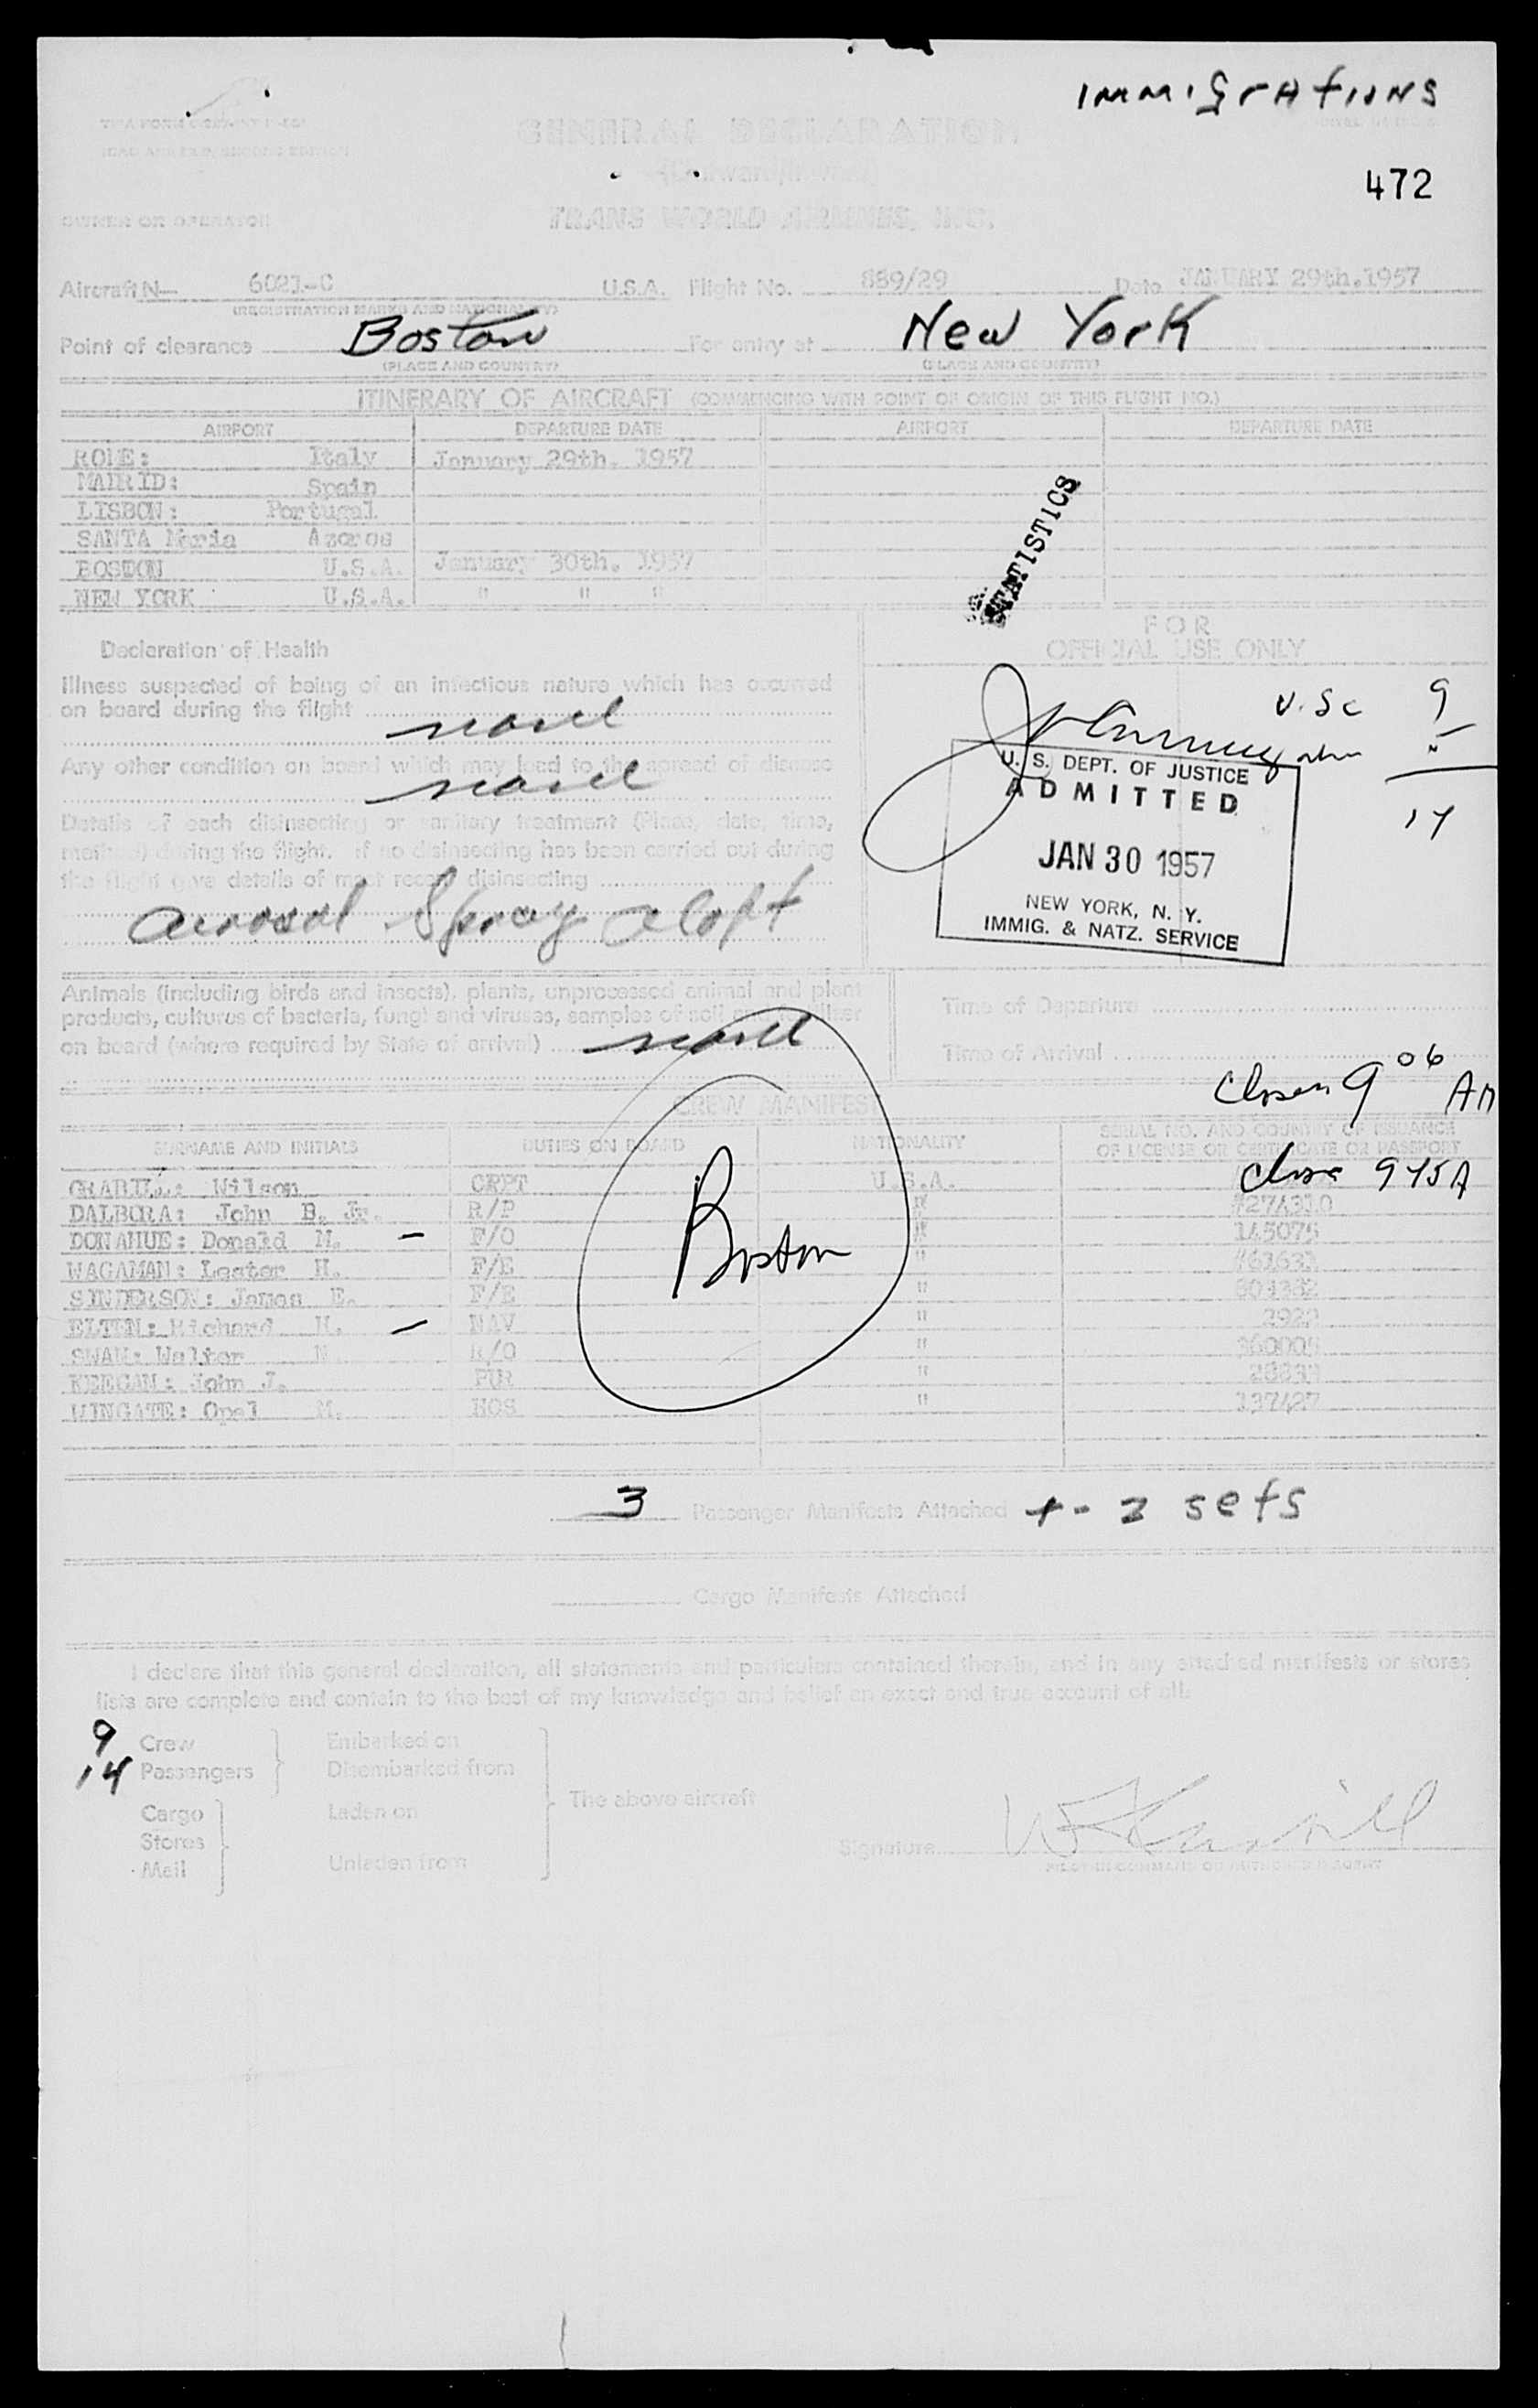 IMMIGRATIONS
GENERAL DECLARATION
(Outward/Inward)
472
OWNER OR OPERATOR
TRANS WORLD AIRLINES, INC.
Aircraft N— 6021-C U.S.A. Flight No. 889/29 Date JANUARY 29th.1957
(REGISTRATION MARKS AND NATIONALITY)
Point of clearance Boston For entry at New York
(PLACE AND COUNTRY) (PLACE AND COUNTRY)
ITINERARY OF AIRCRAFT (COMMENCING WITH POINT OF ORIGIN OF THIS FLIGHT NO.)
AIRPORT DEPARTURE DATE AIRPORT DEPARTURE DATE
ROME: Italy January 29th. 1957
MADRID: Spain
LISBON: Portugal
SANTA Maria Azores
BOSTON U.S.A. January 30th. 1957
NEW YORK U.S.A. " " "
STATISTICS
Declaration of Health
Illness suspected of being of an infectious nature which has occurred
on board during the flight
Any other condition on board which may lead to the spread of disease
Details of each disinsecting or sanitary treatment (Place, date, time,
method) during the flight. If no disinsecting has been carried out during
the flight give details of most recent disinsecting
aerosol Spray aloft
FOR
OFFICIAL USE ONLY
U.Sc 9
14
U. S. DEPT. OF JUSTICE
ADMITTED
JAN 30 1957
NEW YORK, N. Y.
IMMIG. & NATZ. SERVICE
Animals (including birds and insects), plants, unprocessed animal and plant
products, cultures of bacteria, fungi and viruses, samples of soil and fertilizer
on board (where required by State of arrival)
Time of Departure
Time of Arrival
9 06 AM
CREW MANIFEST
SURNAME AND INITIALS DUTIES ON BOARD NATIONALITY SERIAL NO. AND COUNTRY OF ISSUANCE
OF LICENSE OR CERTIFICATE OR PASSPORT
close 945A
Wilson CAPT U.S.A.
DALBORA: John B. Jr. R/P "
DONAHUE: Donald M. — F/O " 145075
WAGAMAN: Lester H. F/E "
SINDERSON: James E. F/E "
ELTEN: Richard H. — NAV "
SWAN: Walter N. R/O "
KEEGAN: John J. PUR "
WINGATE: Opal M. HOS " 137427
Boston
3 Passenger Manifests Attached + - 2 sets
Cargo Manifests Attached
I declare that this general declaration, all statements and particulars contained therein, and in any attached manifests or stores
lists are complete and contain to the best of my knowledge and belief an exact and true account of all:
9 Crew Embarked on
14 Passengers Disembarked from
The above aircraft
Cargo Laden on
Stores
Mail Unladen from
Signature
PILOT IN COMMAND OR AUTHORIZED AGENT